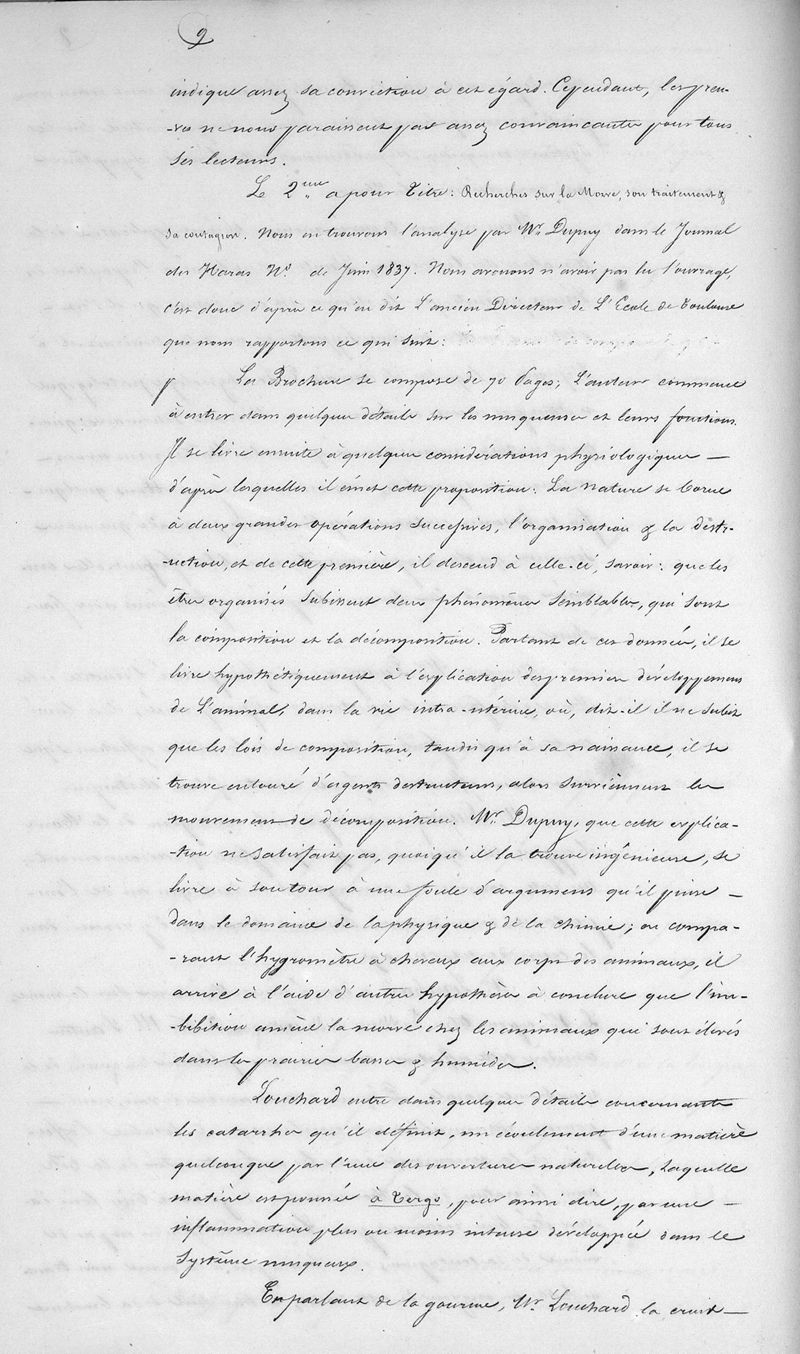 2
indique assez sa conviction à cet égard. Cependant, les preu-
-ves ne nous paraissent pas assez convaincantes pour tous
ses lecteurs.
Le 2.me a pour Titre: Recherches sur la Morve, son traitement &
sa contagion. Nous en trouvons l'analyse par Mr. Dupuy dans le Journal
des Haras No. de Juin 1837. Nous avouons n'avoir pas lu l'ouvrage,
c'est donc d'après ce qu'en dit L'ancien Directeur de L'Ecole de Toulouse
que nous rapportons ce qui suit:
La Brochure se compose de 70 Pages; L'auteur commence
à entrer dans quelques détails sur les muqueuses et leurs fonctions.
Il se livre ensuite à quelques considérations physiologiques —
d'après lesquelles il émet cette proposition: La nature se borne
à deux grandes opérations successives, l'organisation & la destr-
-uction, et de cette première, il descend à celle-ci, savoir: que les
êtres organisés subissent deux phénomènes semblables, qui sont
la composition et la décomposition. Partant de ces données, il se
livre hypothétiquement à l'explication des premiers développemens
de L'animal, dans la vie intra-utérine, où, dit-il il ne subit
que les lois de composition, tandis qu'à sa naissance, il se
trouve entouré d'agents destructeurs, alors surviennent les
mouvemens de décomposition. Mr. Dupuy, que cette explica-
-tion ne satisfait pas, quoiqu'il la trouve ingénieuse, se
livre à son tour à une foule d'argumens qu'il puise —
dans le domaine de la physique & de la chimie; ou compa-
-rant l'hygromètre à cheveux aux corps des animaux, il
arrive à l'aide d'autres hypothèses à conclure que l'im-
-bibition amène la morve chez les animaux qui sont élevés
dans les prairies basses & humides.
Louchard entre dans quelques détails concernants
les catarrhes qu'il définit, un écoulement d'une matière
quelconque par l'une des ouvertures naturelles, Laquelle
matière est poussée à Tergo, pour ainsi dire, par une —
inflammation plus ou moins intense développée dans le
Système muqueux.
En parlant de la gourme, Mr. Louchard la croit —